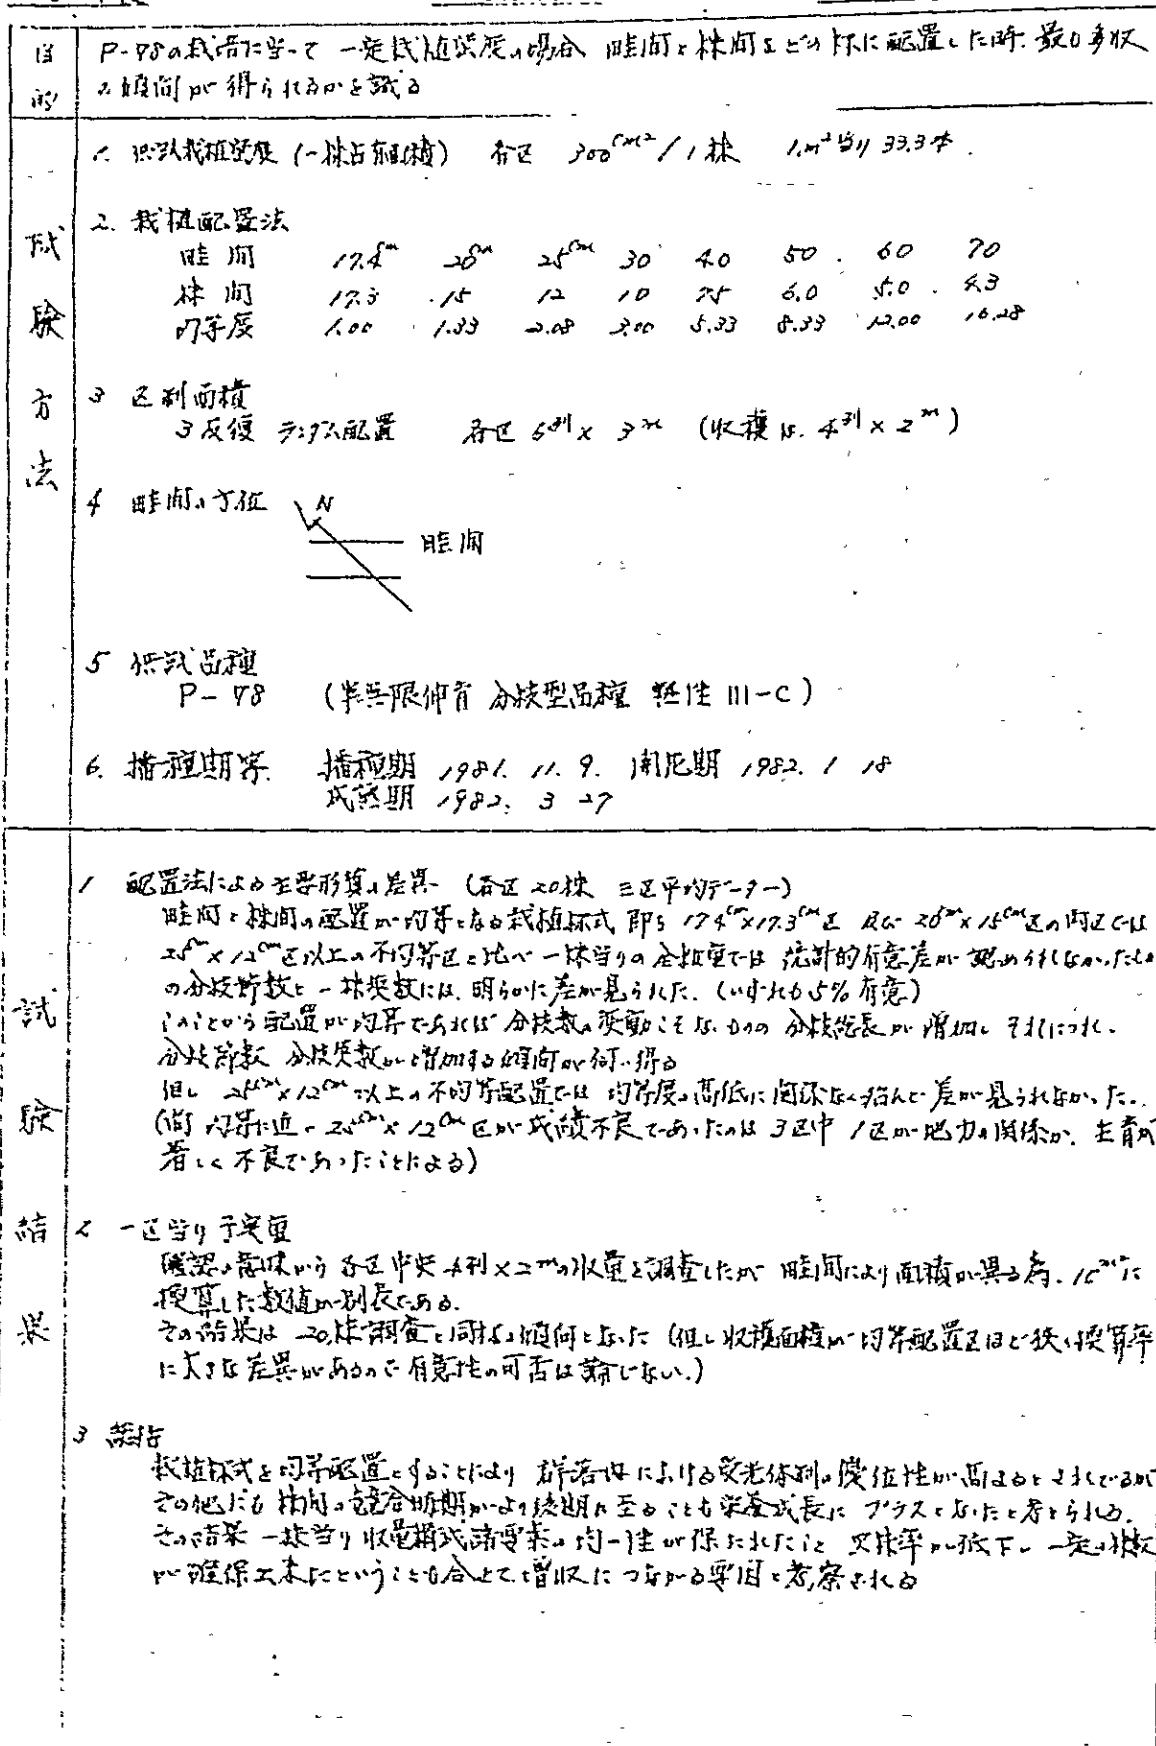 目的
P-78の栽培に当って 一定栽植密度の場合 畦間と株間をどの様に配置した時、最も多収
の傾向が得られるかを試る
試験方法
1. 供試栽植密度 (一株占有面積) 各区 300cm²/1株 1m²当り 33.3本.
2. 栽植配置法
畦間 17.4cm 20cm 25cm 30 40 50 60 70
株間 17.3 15 12 10 7.5 6.0 5.0 4.3
均等度 1.00 1.33 2.08 3.00 5.33 8.33 12.00 16.28
3 区制面積
3反復 ランダム配置 各区 6列 × 3m (収穫は. 4列 × 2m)
4 畦間の方位 N
畦間
5 供試品種
P-78 (半無限伸育 分枝型品種 熟性 III-C)
6. 播種期等. 播種期 1981. 11. 9. 開花期 1982. 1 18
成熟期 1982. 3 27
試験結果
1 配置法による主要形質の差異 (各区 20株 三区平均データー)
畦間と株間の配置が均等となる栽植様式 即ち 17.4cm×17.3cm区 及び 20cm×15cm区の両区では
25cm×12cm区以上の不均等区と比べ 一株当りの全粒重では 統計的有意差が 認められなかったもの
の分枝節数と一株莢数には、明らかに差が見られた. (いずれも5%有意)
このことから 配置が均等であれば 分枝数の変動こそ 分枝総長が 増加し それにつれ.
分枝節数 分枝莢数が増加する傾向が伺い得る
但し 25cm×12cm 以上の不均等配置では 均等度の高低に関係なく殆んど差が見られなかった.
(尚 均等に近い 25cm×12cm区が成績不良であったのは 3区中 1区が地力の関係か、生育が
著しく不良であったことによる)
2 一区当り子実重
確認の意味から 各区中央 4列×2mの収量を調査したが 畦間により面積が異る為.
換算した数値が別表である.
その結果は 20株調査と同様の傾向となった (但し収穫面積が均等配置区ほど狭く換算率
に大きな差異があるので 有意性の可否は論じない.)
3 結語
栽植様式を均等配置とすることにより 群落内における受光体制の優位性が高まるとされているが
その他にも 株間の競合時期がより後期に至ることも栄養成長に プラスとなったと考えられる.
その結果 一株当り収量構成諸要素の均一性が保たれたこと 欠株率が低下し 一定の株数
が確保出来たということも合せて増収に つながる要因と考察される